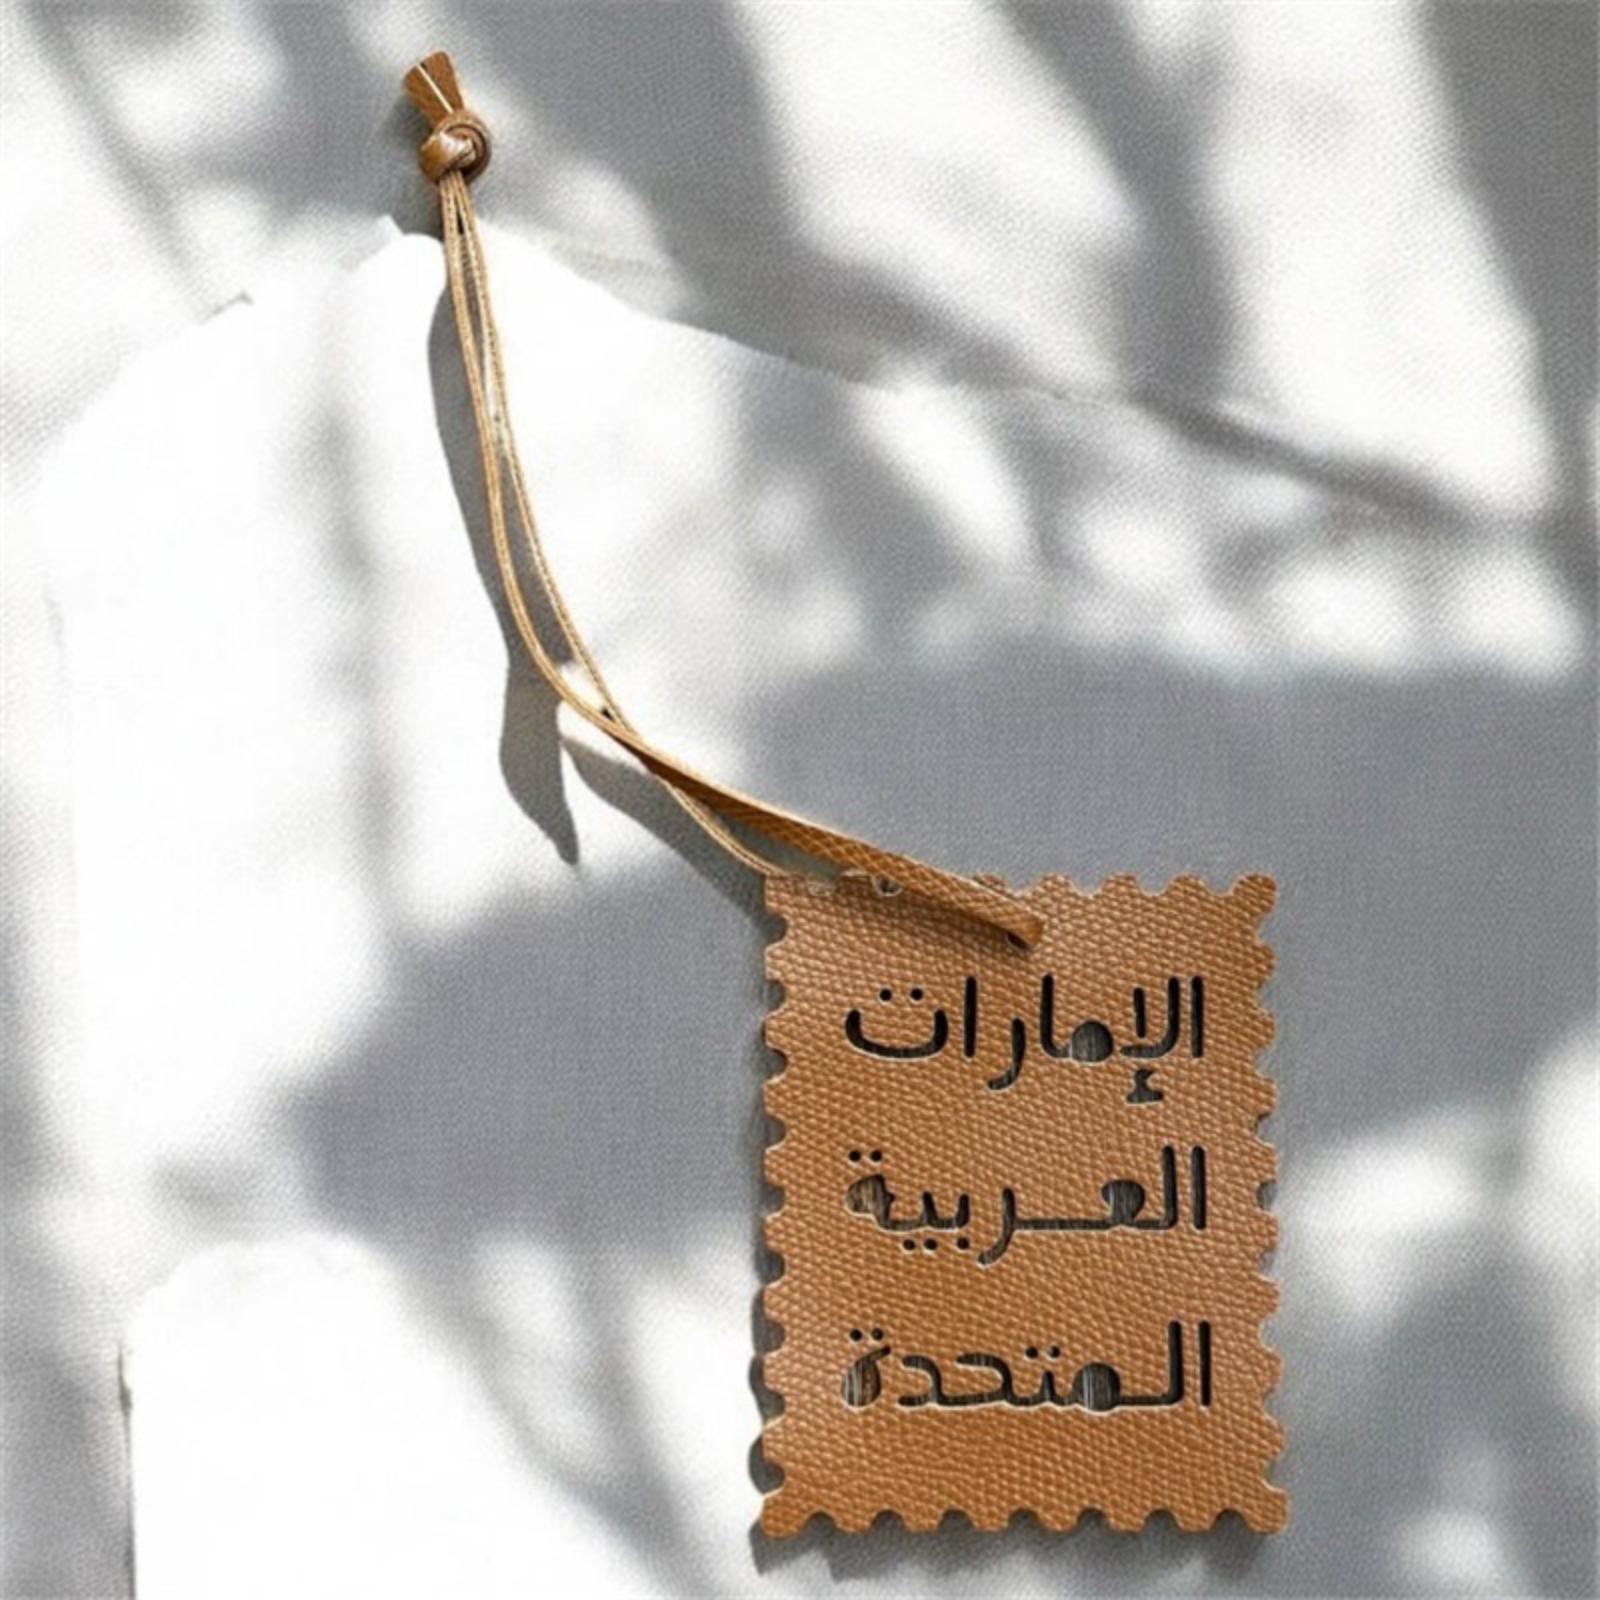 الإمارات
العربية
المتحدة